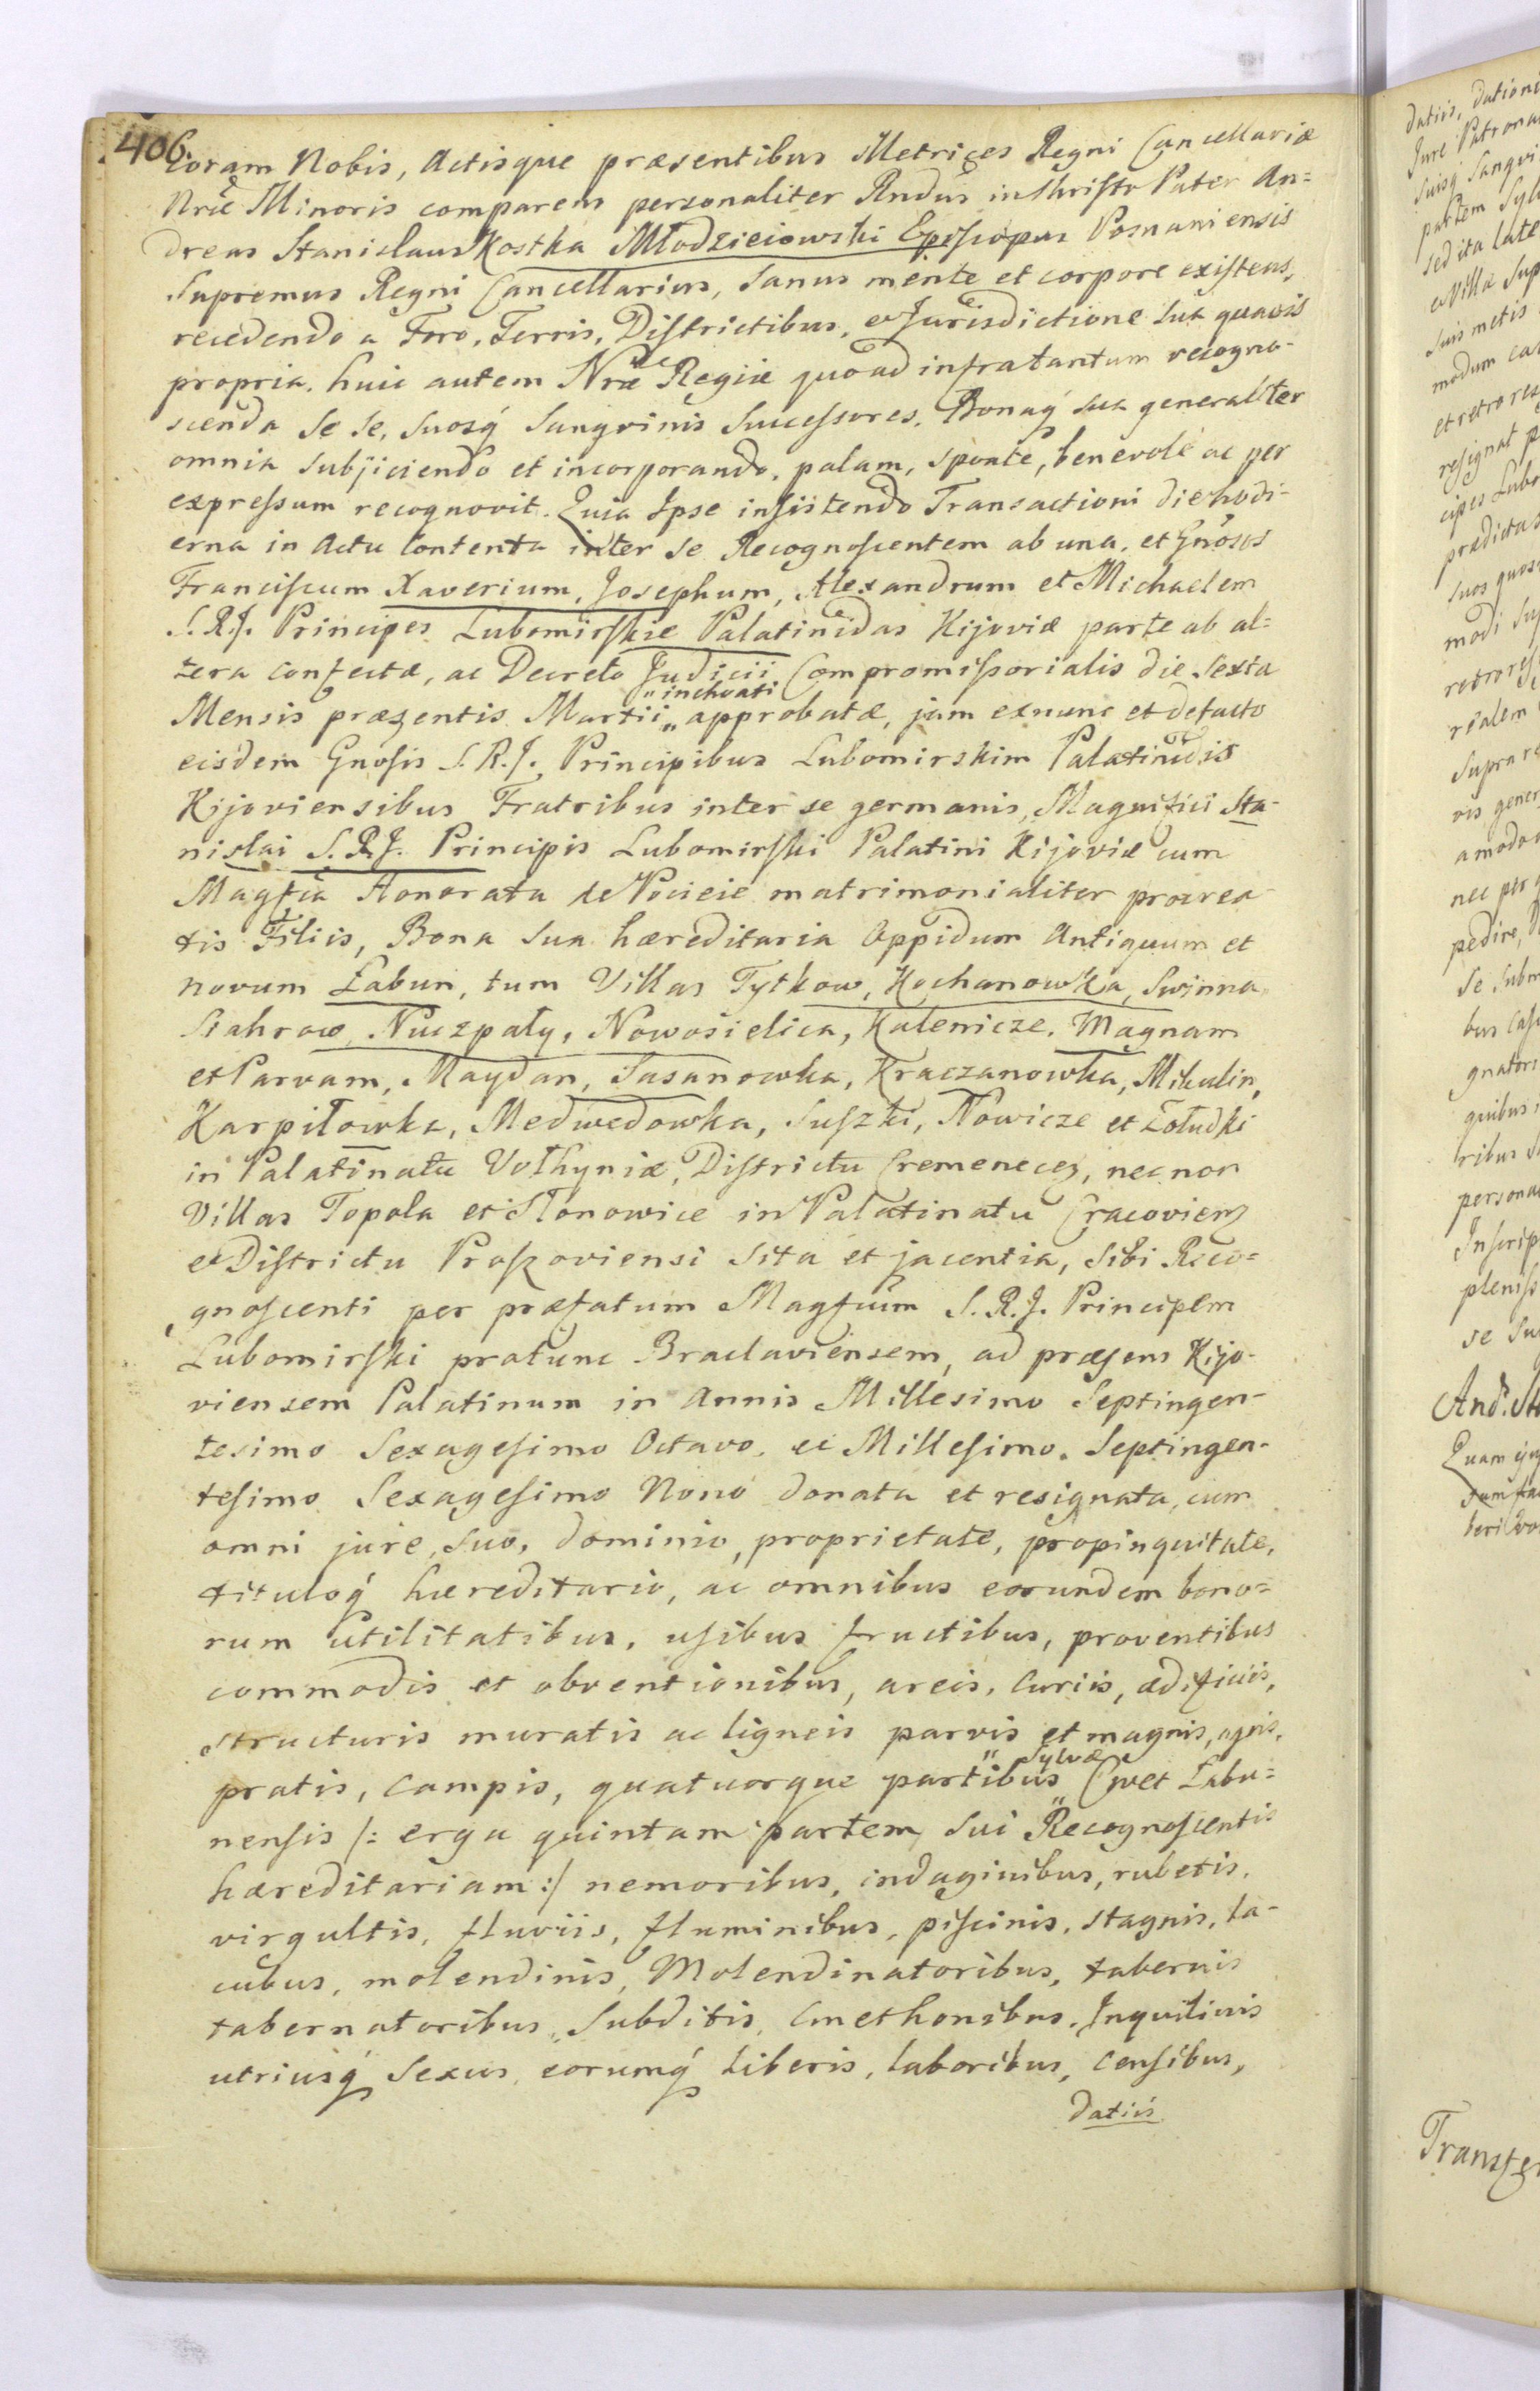 406.
Coram Nobis, Actisque præsentibus Metrices Regni Cancellariæ
Nræ Minoris comparens personaliter Rndus in Christo Pater An=
dreas Stanislaus Kostka Młodzieiowski Episcopus Posnaniensis
Supremus Regni Cancellarius, Sanus mente et corpore existens,
recedendo a Foro, Terris, Districtibus, et Jurisdictione sua quavis
propria. huic autem Nræ Regiæ quoad infratantum recogno-
scenda se se, suosq́ Sangvinis Successores, Bonaq́ sua generaliter
omnia subjiciendo et incorporando, palam, sponte, benevolé ac per
expressum recognovit. Quia Ipse insistendo Transactioni die hodi-
erna in Actu Contenta inter se Recognoscentem ab una, et Gnosos
Franciscum Xaverium, Josephum, Alexandrum et Michaelem
S.R.J. Principes Lubomirskie Palatinidas Kijoviæ parte ab al=
tera confectæ, ac Decreto Judicii Compromissorialis die Sexta
Mensis præsentis Martii „inchoati„ approbatæ, jam exnunc et defacto
eisdem Gnosis S.R.J. Principibus Lubomirskim Palatinidis
Kijoviensibus Fratribus inter se germanis, Magnifici Sta-
nislai S.R.J. Principis Lubomirski Palatini Kijoviæ cum
Magfca Honorata de Pocieie matrimonialiter procrea
tis Filiis, Bona sua hæreditaria Oppidum Antiquum et
novum Łabun, tum Villas Tytkow, Kochanowka, Swinna,
Siahrow, Nuczpały, Nowosielica, Kalenicze, Magnam
et Parvam, Maydan, Sasanowka, Kraczanowka, Mikulin,
Karpiłowka, Medwedowka, Suszki, Nowicze et Zołudki
in Palatinatu Volhyniæ, Districtu Cremenecen, nec non
Villas Topola et Stonowice in Palatinatu Cracovien
et Districtu Proszoviensi sita et jacentia, sibi Reco=
gnoscenti per præfatum Magfcum S.R.J. Principem
Lubomirski protunc Braclaviensem, ad præsens Kijo-
viensem Palatinum in Annis Millesimo Septingen-
tesimo Sexagesimo Octavo, et Millesimo Septingen-
tesimo Sexagesimo Nono donata et resignata, cum
omni jure, suo, dominio, proprietate, propinquitate,
tituloq́ hæreditario, ac omnibus eorundem bono=
rum utilitatibus, usibus fructibus, proventibus
commodis et obventionibus, areis, Curiis, ædificiis,
structuris muratis ac ligneis parvis et magnis, agris,
pratis, campis, quatuorque partibus "Sylvæ" Cwet Łabu=
nensis /: erga quintam partem sui Recognoscentis
hæreditariam :/ nemoribus, indaginibus, rubetis,
virgultis, fluviis, fluminibus, piscinis, stagnis, la-
cubus, molendinis, Molendinatoribus, tabernis
tabernatoribus, Subditis, Cmethonibus, Inquilinis
utriusq́ Sexus, eorumq́ liberis, laboribus, censibus,
datiis
datiis, dationi
Jure Patrona
suisq́ Sangvi
partem Sylv
sed ita late
a Villa Sup
suis metis
modum ea
et retro re
resignat p
cipes Lubo
prædictas
suos quos
modi Su
retro res
realem
Supra r
vis gener
a modo
nec per
pedire,
se subm
bus Cas
gnators
quibus
ribus
persona
Inscrip
pleniss
se Su
And. Sta
Quam
tum
beri
Transfe